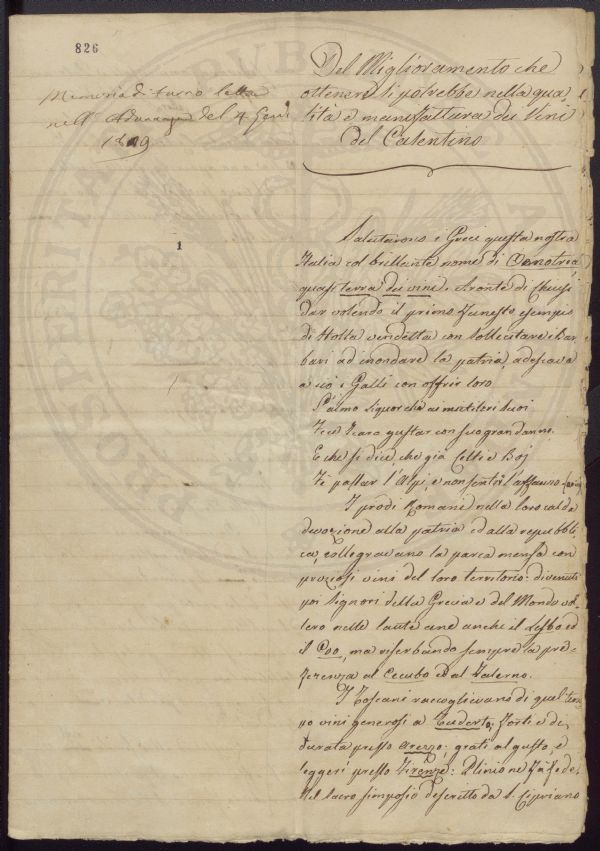 826
Memoria di turno letta
nell' Adunanza del 4 Genn
1809
1
Del Miglioramento che
ottenere si potrebbe nella qua
lità e manifattura dei Vini
del Casentino
Salutarono i Greci questa nostra
Italia col brillante nome di Oenotria
quasi terra dei vini. Aronte di Chiusi
dar volendo il primo funesto esempio
di stolta vendetta con sollecitare i Bar
bari ad inondare la patria, adescava
a ciò i Galli con offrir loro
L'almo liquor che ai
Icaro gustar con suo gran danno.
E che si dice, che già Celti e Boj
Fè passar l'Alpi, e non sentir l'affanno
I prodi Romani nella loro calda
devozione alla patria ed alla repubbli
ca, rallegravano la parca mensa con
preziosi vini del loro territorio: divenuti
poi Signori della Grecia e del Mondo vol
lero nelle laute cene anche il Lesbo ed
il Coo, ma riserbando sempre la pre
ferenza al Cecubo e al Falerno.
I Toscani raccoglievano di quel tem
po vini generosi a Tuderto, forti e di
durata presso Arezzo; grati al gusto, e
leggeri presso Firenze: Plinio ne fà fede.
Nel sacro simposio descritto da S. Cipriano